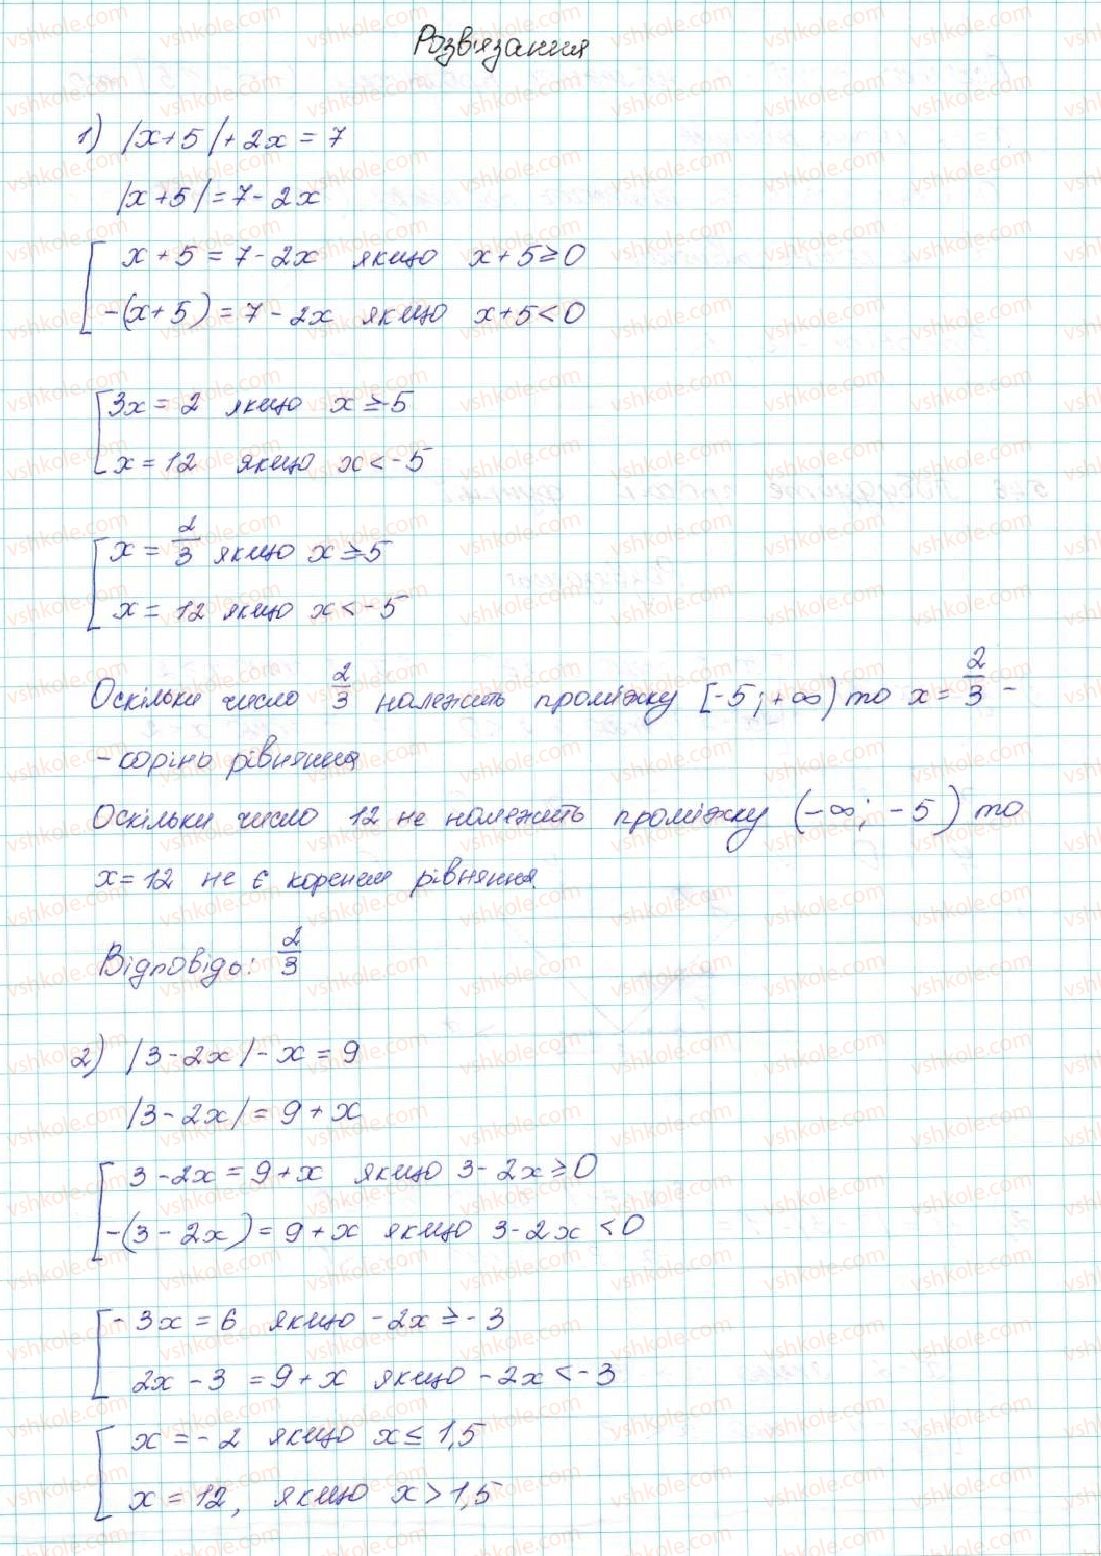 Розв'язання
1) |x+5|+2x=7
|x+5|=7-2x
x+5=7-2x якщо x+5≥0
-(x+5)=7-2x якщо x+5<0
3x=2 якщо x≥-5
x=12 якщо x<-5
x=2/3 якщо x≥5
x=12 якщо x<-5
Оскільки число 2/3 належить проміжку [-5;+∞) то x=2/3 -
-корінь рівняння
Оскільки число 12 не належить проміжку (-∞; -5) то
x=12 не є коренем рівняння
Відповідь: 2/3
2) |3-2x|-x=9
|3-2x|=9+x
3-2x=9+x якщо 3-2x≥0
-(3-2x)=9+x якщо 3-2x<0
-3x=6 якщо -2x≥-3
2x-3=9+x якщо -2x<-3
x=-2 якщо x≤1,5
x=12, якщо x>1,5